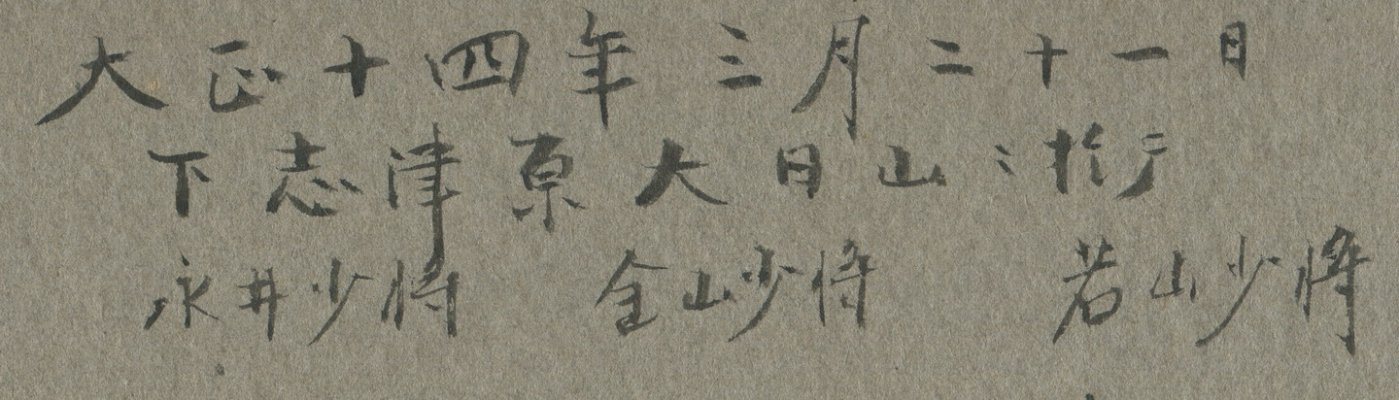 大正十四年三月二十一日
下志津原大日山ニ於テ
永井少将 金山少将 若山少将